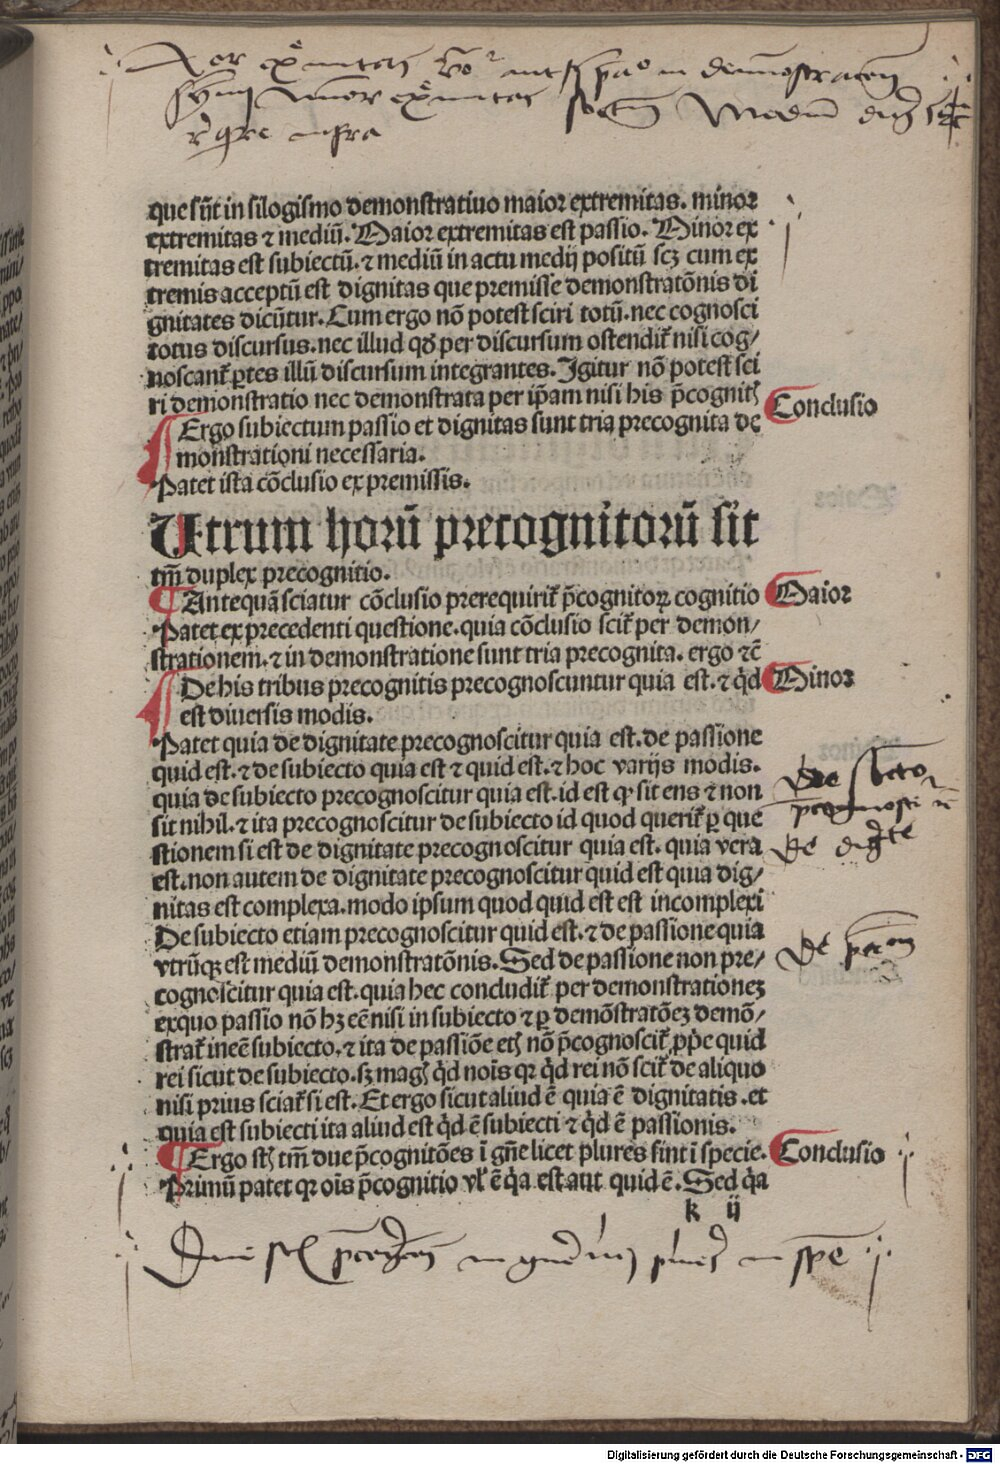 que sūt in silogismo demonstratiuo maior extremitas. minor
extremitas ⁊ mediū. Maior extremitas est passio. Minor ex
tremitas est subiectū. ⁊ mediū in actu medij positū scꝫ cum ex
tremis acceptū est dignitas que premisse demonstratōnis di
gnitates dicūtur. Cum ergo nō potest sciri totū. nec cognosci
totus discursus. nec illud qđ per discursum ostendit᷑ nisi cog/
noscant᷑ ꝑtes illū discursum integrantes. Igitur nō potest sci
ri demonstratio nec demonstrata per ip̄am nisi his p̄cognitꝭ
Conclusio
Ergo subiectum passio et dignitas sunt tria precognita de
monstrationi necessaria.
Patet ista cōclusio ex premissis.
Utrum horū precognitorū sit
tm̄ duplex precognitio.
Maior
Antequā sciatur cōclusio prerequirit᷑ p̄cognitoꝝ cognitio
Patet ex precedenti questione. quia cōclusio scit᷑ per demon/
strationem. ⁊ in demonstratione sunt tria precognita. ergo ⁊c̄
Minor
De his tribus precognitis precognoscuntur quia est. ⁊ qͥd
est diuersis modis.
Patet quia de dignitate precognoscitur quia est. de passione
quid est. ⁊ de subiecto quia est ⁊ quid est. ⁊ hoc varijs modis.
quia de subiecto precognoscitur quia est. id est ꝙ sit ens ⁊ non
sit nihil. ⁊ ita precognoscitur de subiecto id quod querit᷑ ꝑ que
stionem si est de dignitate precognoscitur quia est. quia vera
est. non autem de dignitate precognoscitur quid est quia dig/
nitas est complexa. modo ipsum quod quid est est incomplexi
De subiecto etiam precognoscitur quid est. ⁊ de passione quia
vtrūqꝫ est mediū demonstratōnis. Sed de passione non pre/
cognoscitur quia est. quia hec concludit᷑ per demonstrationeꝫ
exquo passio nō hꝫ eē nisi in subiecto ⁊ ꝑ demōstratōeꝫ demō/
strat᷑ ineē subiecto. ⁊ ita de passiōe etꝭ nō p̄cognoscit᷑ ꝓp̄e quid
rei sicut de subiecto. sꝫ magꝭ qͥd nois̄ qꝛ qͥd rei nō scit᷑ de aliquo
nisi prius sciat᷑ si est. Et ergo sicut aliud ē quia ē dignitatis. et
quia est subiecti ita aliud est qͥd ē subiecti ⁊ qͥd ē passionis.
Conclusio
Ergo stꝭ tm̄ due p̄cognitōes ī gn̄e licet plures sint ī specie.
Primū patet qꝛ ois̄ p̄cognitio vl᷑ ē qͥa est aut quid ē. Sed qͥa
k ij
Digitalisierung gefördert durch die Deutsche Forschungsgemeinschaft - DFG